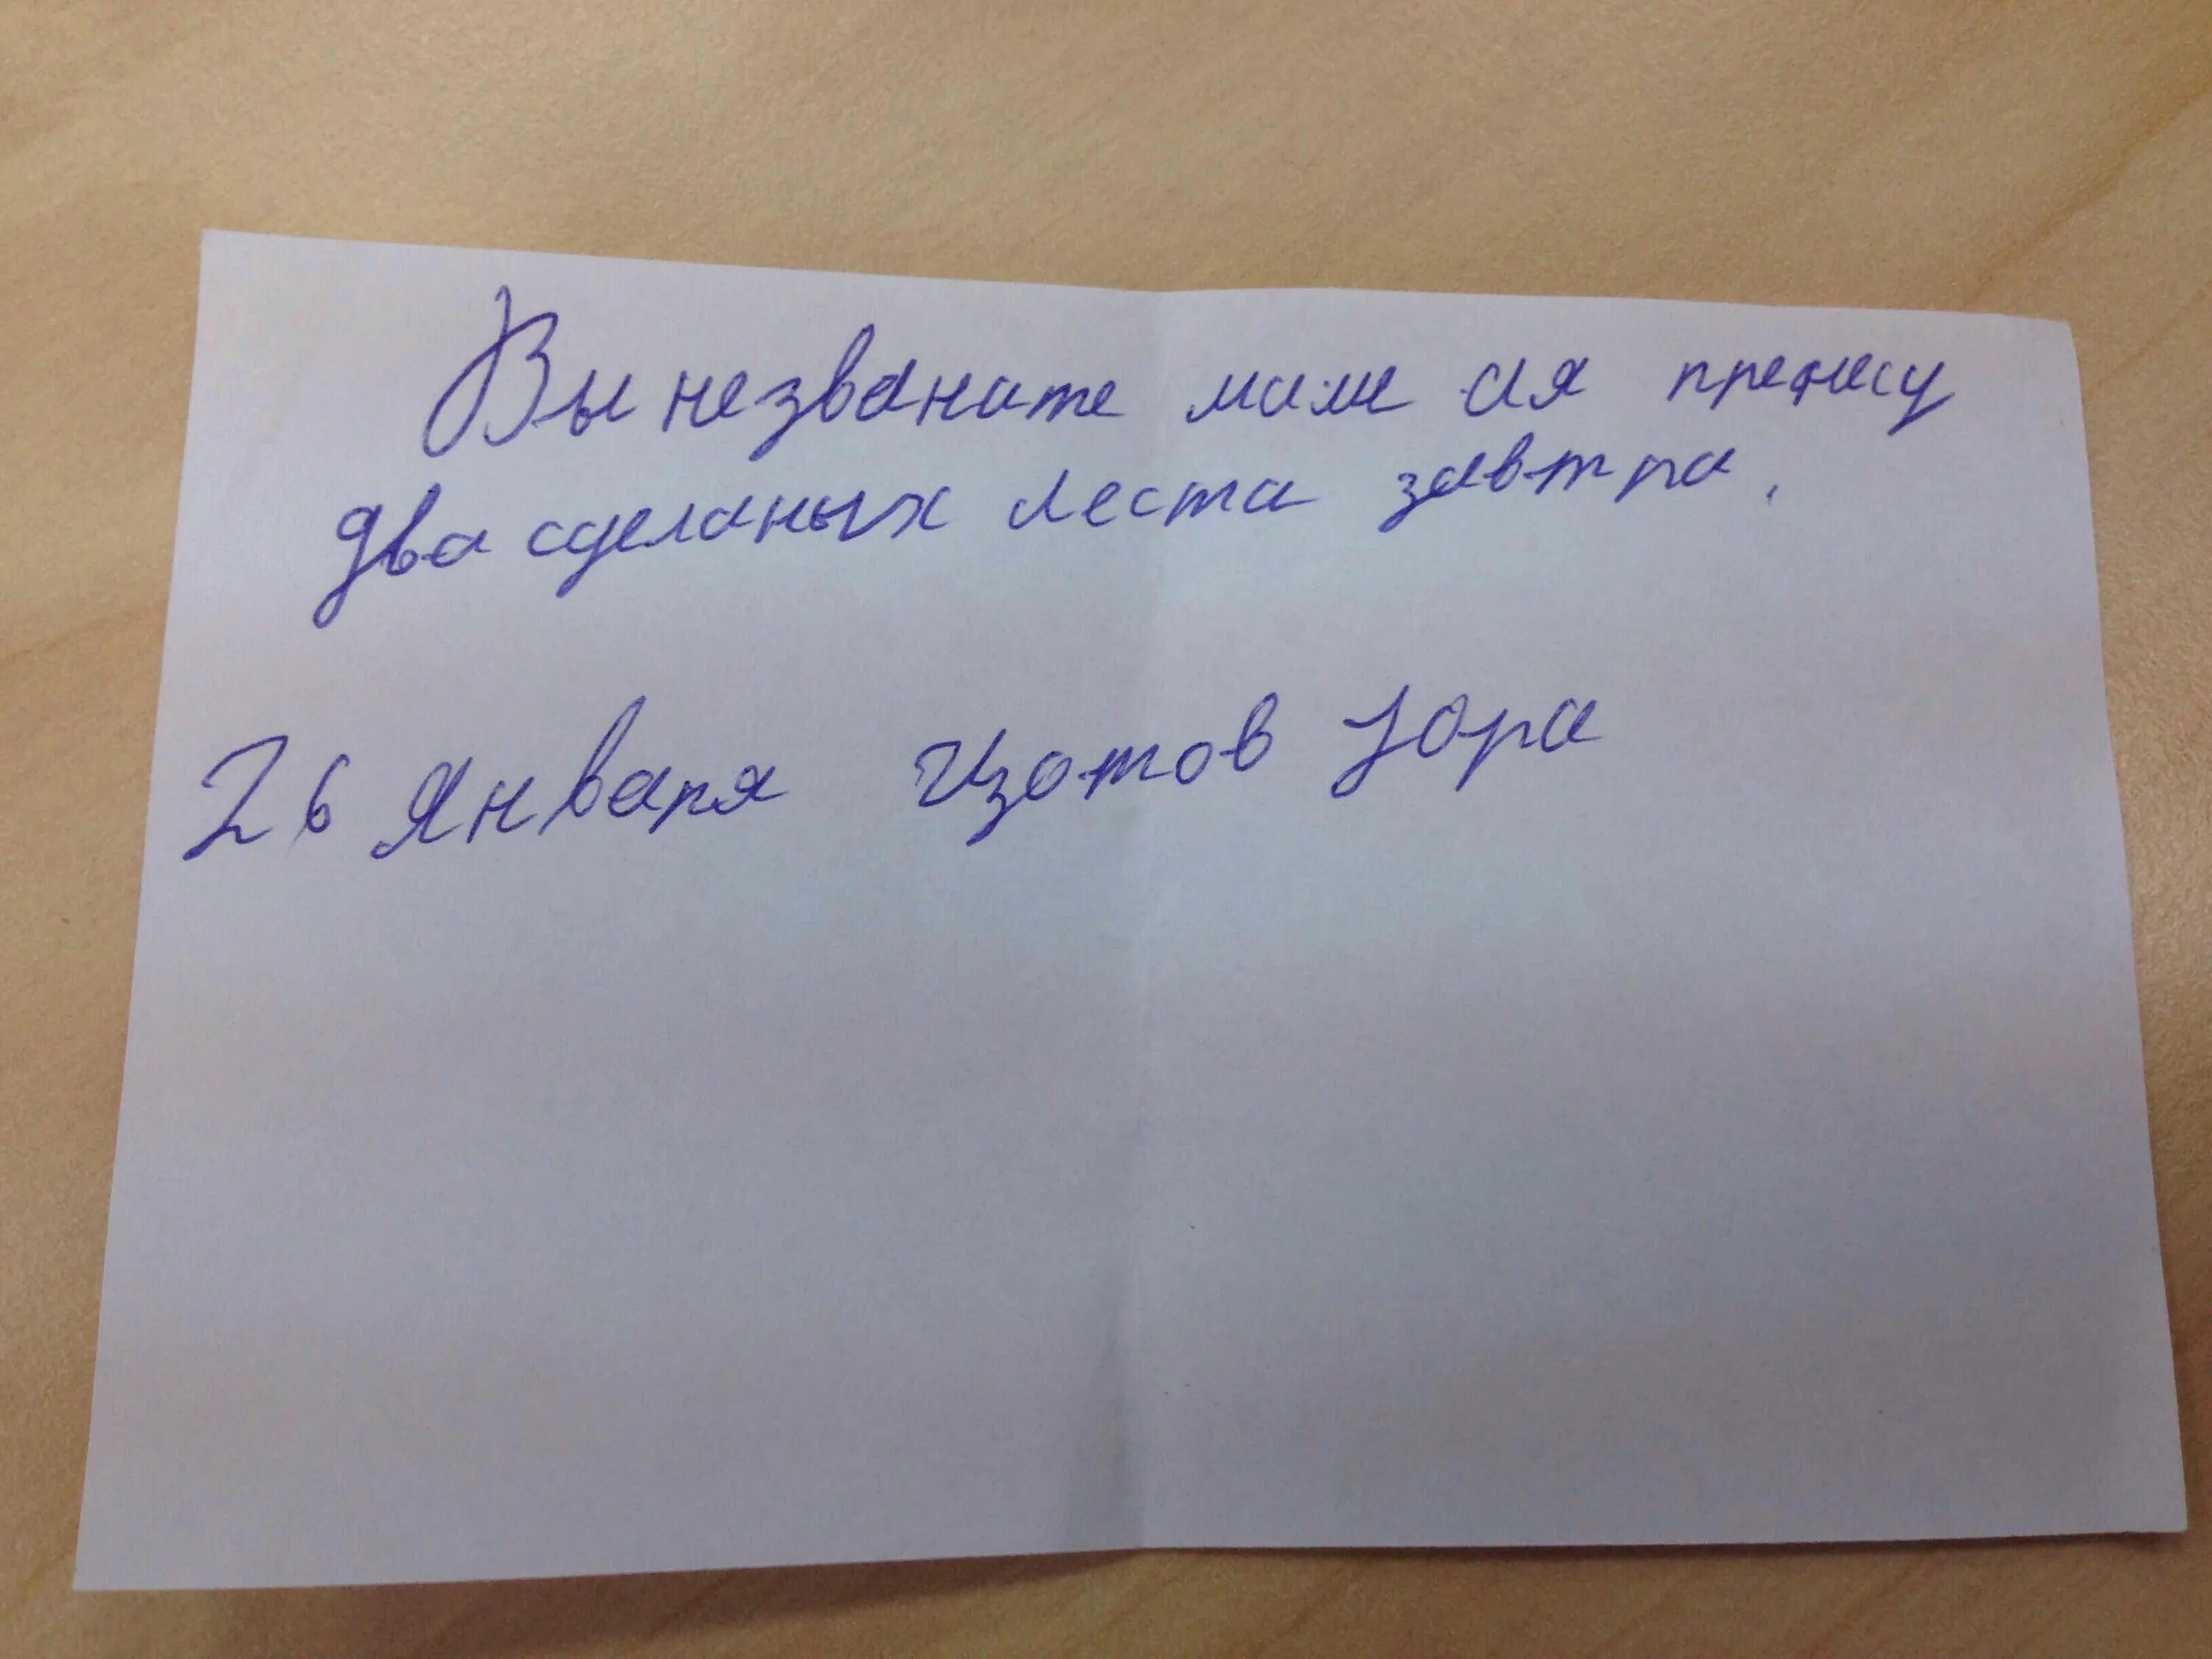 Вы незваните маме ая принесу
два сделаных леста завтра.
26 Января Изотов Юра